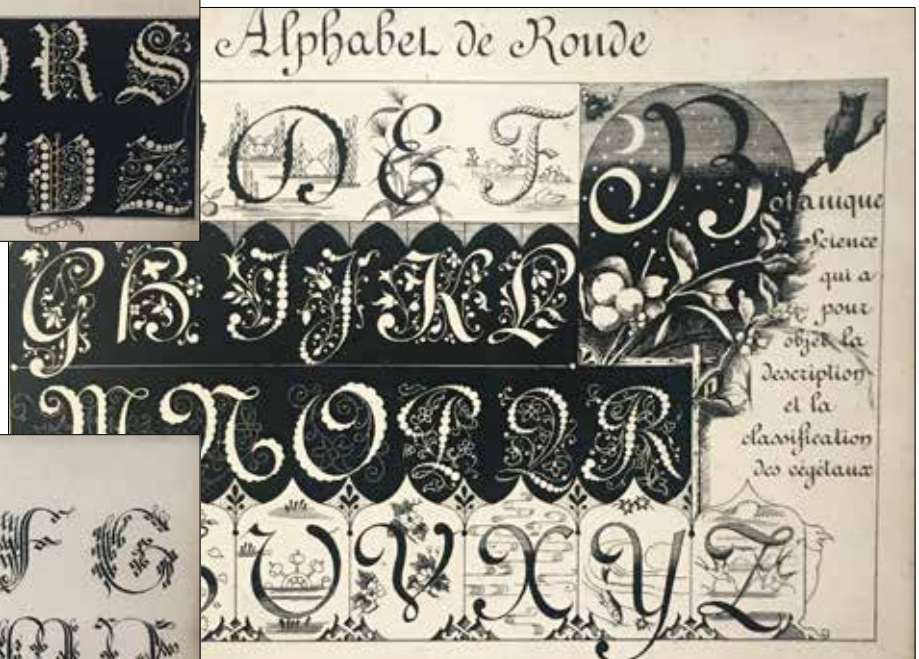 R S
Y Z
Alphabet de Ronde
D E F
G H I J K L
M N O P Q R
U V X Y Z
Botanique
Science
qui a
pour
objet la
description
et la
classification
des végétaux
F G